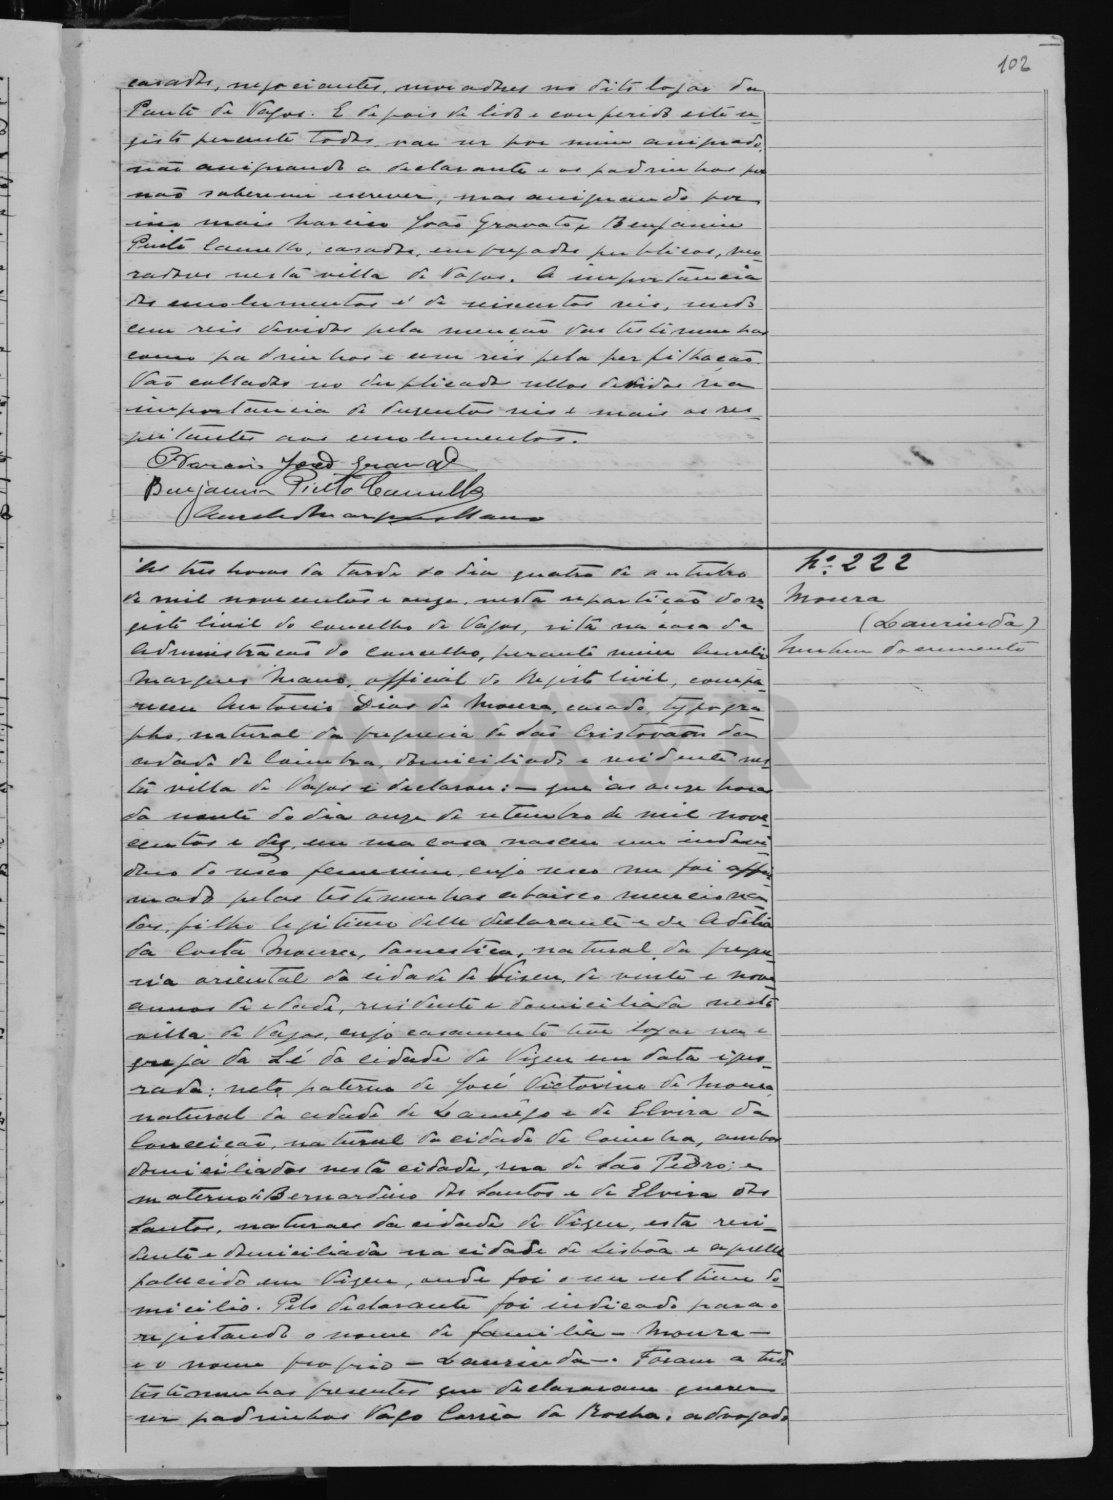 102
casados, negociantes, moradores no dito logar da
Ponte de Vagos. E depois de lido e conferido este re-
gisto perante todos, vae ser por mim assignado,
não assignando a declarante e os padrinhos por
não saberem escrever, mas assignando por
João Gravato, e Benjamim
Pinto Camello, casados, empregados publicos, mo-
radores nesta villa de Vagos. A importancia
dos emolumentos é de seiscentos reis, sendo
cem reis devidos pela menção das testimunhas
como padrinhos e cem reis pela perfilhação.
Vão collados no duplicado sellos devidos na
importancia de duzentos reis e mais os res-
peitantes aos emolumentos.
Benjamim Pinto Camello
Nº 222
Moura
(Laurinda)
Nenhum documento
Ás tres horas da tarde do dia quatro de outubro
de mil novecentos e onze, nesta repartição do re-
gisto civil do concelho de Vagos, sita na casa da
Administração do concelho, perante mim Aurelio
Marques Mano, official do Registo civil, compa-
receu Antonio Dias de Moura, casado, typogra-
pho, natural da freguesia de São Cristovam da
cidade de Coimbra, domiciliado e residente nes-
ta villa de Vagos e declarou: — que ás onze horas
da noute do dia onze de setembro de mil nove-
centos e dez, em sua casa nasceu um indevi-
duo do sexo femenino, cujo sexo me foi affir-
mado pelas testemunhas abaixo menciona-
das, filho legitimo delle declarante e de Adelia
da Costa Moura, domestica, natural da fregue-
sia oriental da cidade de Viseu, de vinte e nove
annos de edade, residente e domiciliada nesta
villa de Vagos, cujo casamento teve logar na e-
greja da Sé da cidade de Vizeu em data igno-
rada; neto paterno de José Victorino de Moura
natural da cidade de Lamêgo e de Elvira da
Conceição, natural da cidade de Coimbra, ambos
domiciliados nesta cidade, rua de São Pedro; e
materno de Bernardino dos Santos e de Elvira dos
Santos, naturaes da cidade de Vizeu, esta resi-
dente e domiciliada na cidade de Lisbôa e aquelle
fallecido em Vizeu, onde foi o seu ultimo do-
micilio. Pelo declarante foi indicado para o
registando o nome de familia — Moura —
e o nome proprio — Laurinda —. Foram a tudo
testemunhas presentes que declararam querer
ser padrinhos Vasco Corrêa da Rocha, advogado
ADAVR